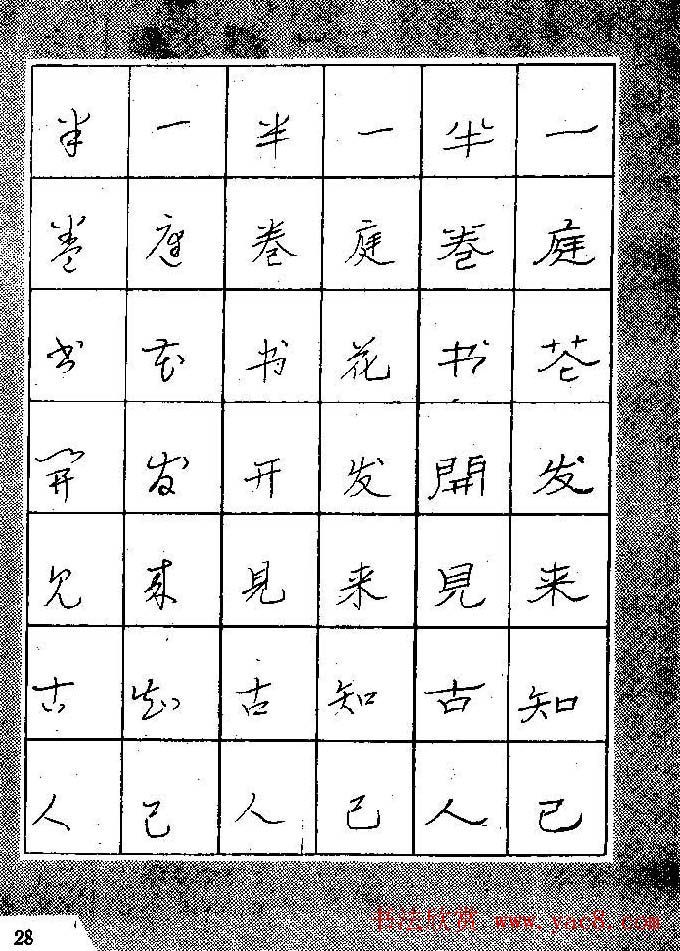 一庭花发来知己
半卷书開見古人
一庭花发来知己
半卷书开見古人
一庭花发来知己
半卷书開见古人
28
书法欣赏 www.yac8.com